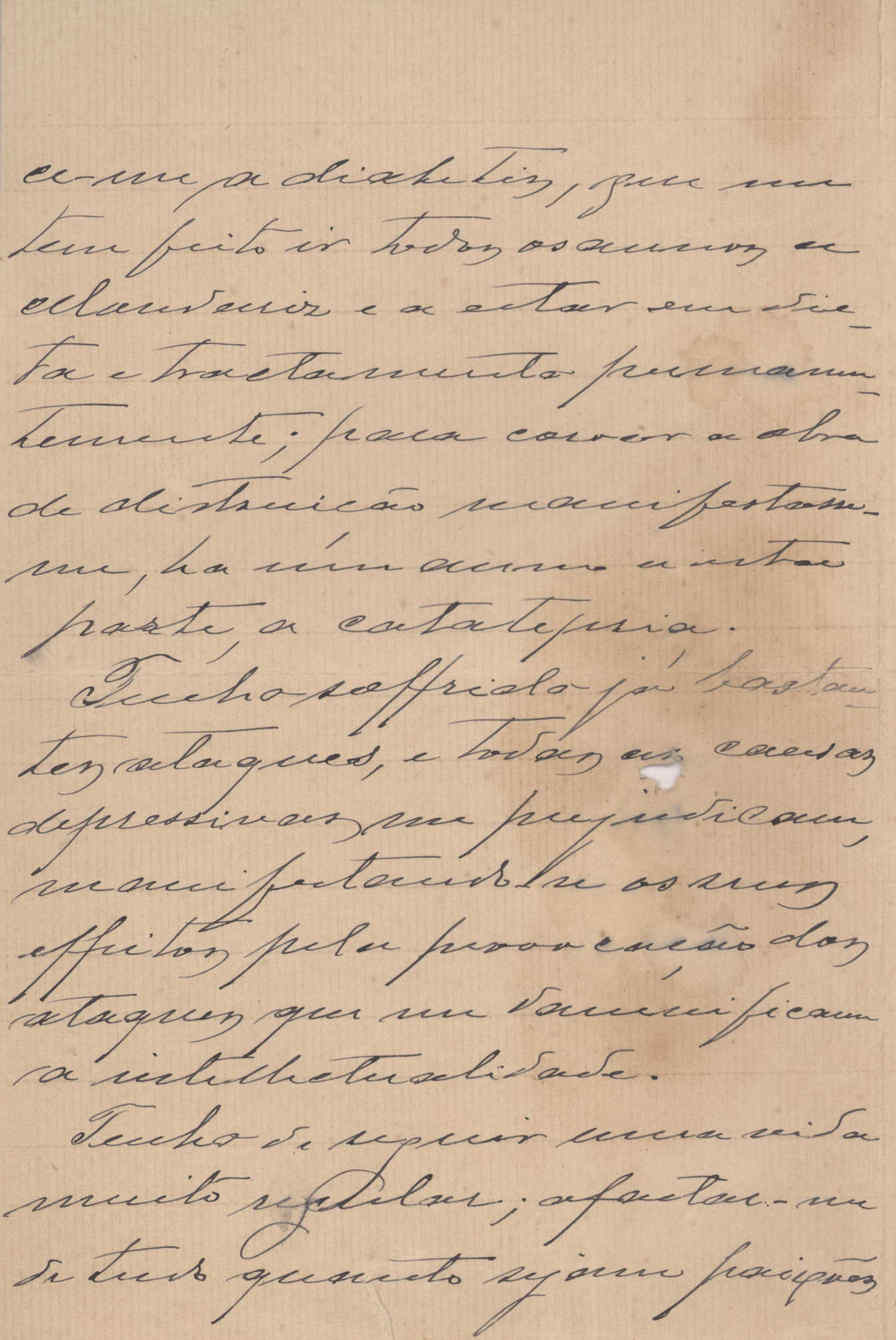 ce-me a diabetis, que me
tem feito ir todos os annos a
Mondariz e a estar em die-
ta e tractamento permanen-
temente; para coroar a obra
de distruição manifestam-
me, ha um anno a esta
parte, a catalepsia.
Tenho soffrido já bastan-
tes ataques, e todas as causas
depressivas me prejudicam,
manifestando-se os seus
effeitos pela provocação dos
ataques que me damnificam
a intellectualidade.
Tenho de seguir uma vida
muito regular; afastar-me
de tudo quanto sejam paixões